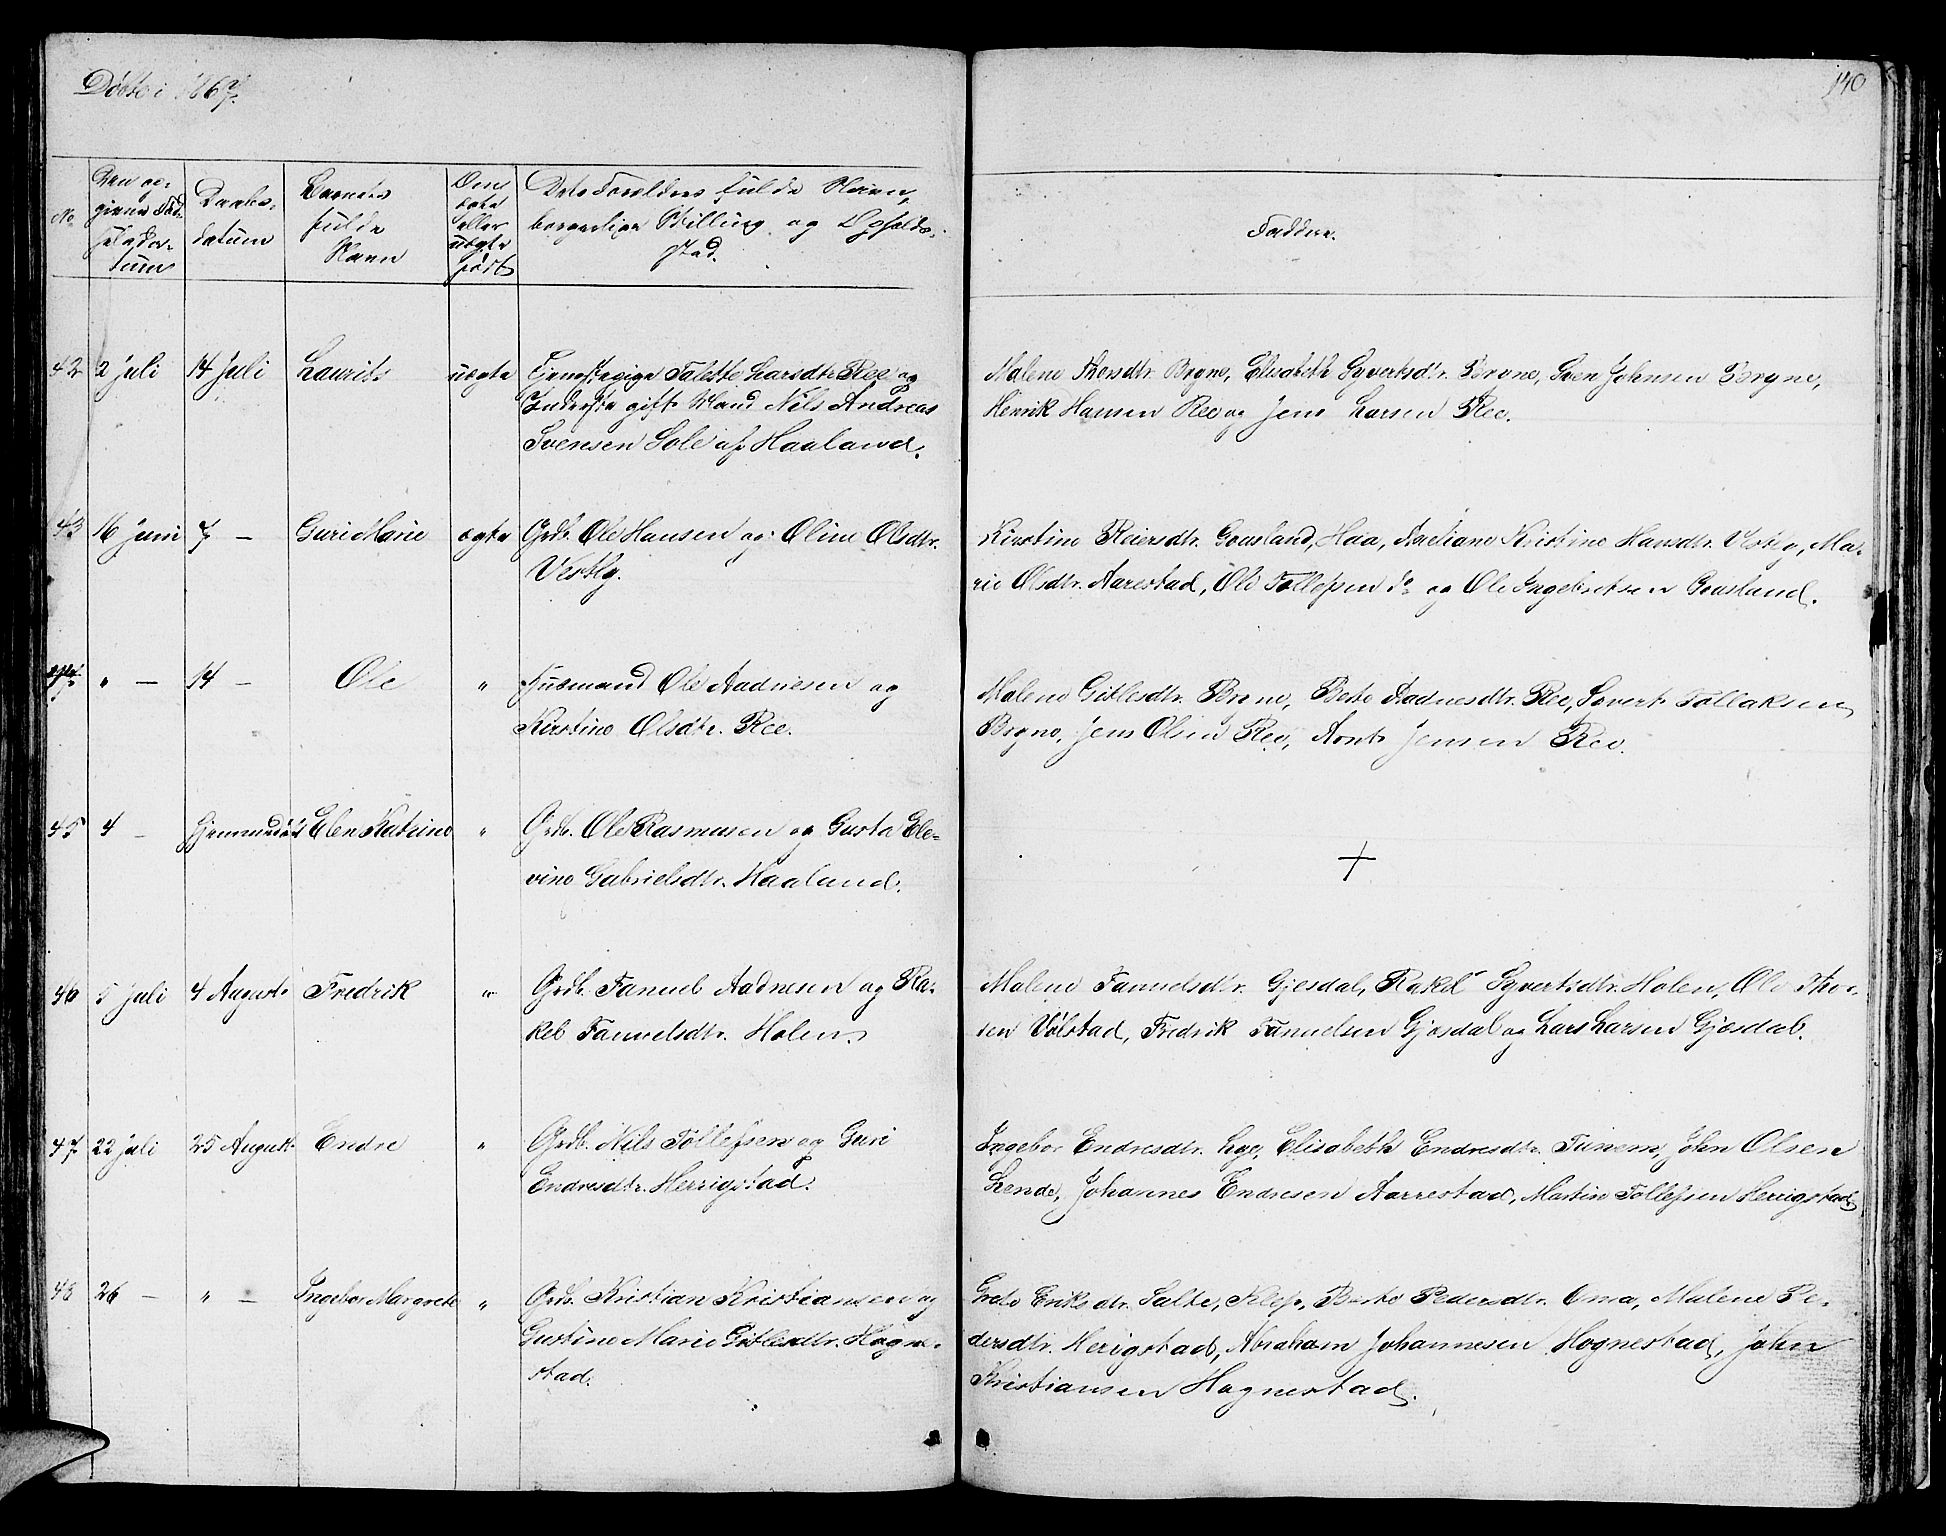 Døbte i 1867.
140
No
Den op-
givne Fød-
selsda-
tum
Daabs-
datum
Barnets
fulde
Navn
Om
ægte
eller
uægte
født
Dets Forældres fulde Navn,
borgerlige Stilling og Opholds-
sted.
Faddere.
42 2 juli 14 juli Laurits uægte Tjenestepige Talette Larsdtr. Ree og
Inderste gift Mand Nils Andreas
Svensen Sole af Haaland.
Malene Thorsdtr. Bryne, Elisabeth Syvertsdtr. Bryne, Sven Johnsen Bryne,
Henrik Hansen Ree og Jens Larsen Ree.
43 16 juni 7 — Guri Marie ægte Grdb. Ole Hansen og Oline Olsdtr.
Vestly.
Kirstine Reiersdtr. Gousland, Haa, Kristine Hansdtr. Vestly, Ma-
rie Olsdtr. Aarestad, Ole Tollefsen do og Ole Ingebretsen Gousland.
44 " — 14 — Ole " Husmand Ole Aadnesen og
Kirstine Olsdtr. Ree.
Malene Gitlesdtr. Bryne, Berte Aadnesdtr. Ree, Sivert Tollaksen
Bryne, Jens Olsen Ree, Arnt Jensen Ree.
45 4 — Hjemmedøbt Elen Katrine " Grdb. Ole Rasmusen og Gusta Ele-
vine Gabrielsdtr. Haaland.
+
46 5 juli 4 August Fredrik " Grdb. Tanuel Aadnesen og Ra-
kel Tanuelsdtr. Holen.
Malene Tanuelsdtr. Gjesdal, Rakel Syvertsdtr. Holen, Ole Thor-
sen Vølstad, Fredrik Tanuelsen Gjesdal og Lars Larsen Gjesdal.
47 22 juli 25 August Endre " Grdb. Nils Tollefsen og Guri
Endresdtr. Herrigstad.
Ingebor Endresdtr. Lye, Elisabeth Endresdtr. Tunem, John Olsen
Lende, Johannes Endresen Aarrestad, Martin Tollefsen Herigstad.
48 26 — " — Ingebor Margrete " Grdb. Kristian Kristiansen og
Gustine Marie Gitlesdtr. Hogne-
stad.
Grete Eriksdtr. Salte, Klep, Berte Pedersdtr. Oma, Malene Pe-
dersdtr. Herigstad, Abraham Johannesen Hognestad, John
Kristiansen Hognestad.